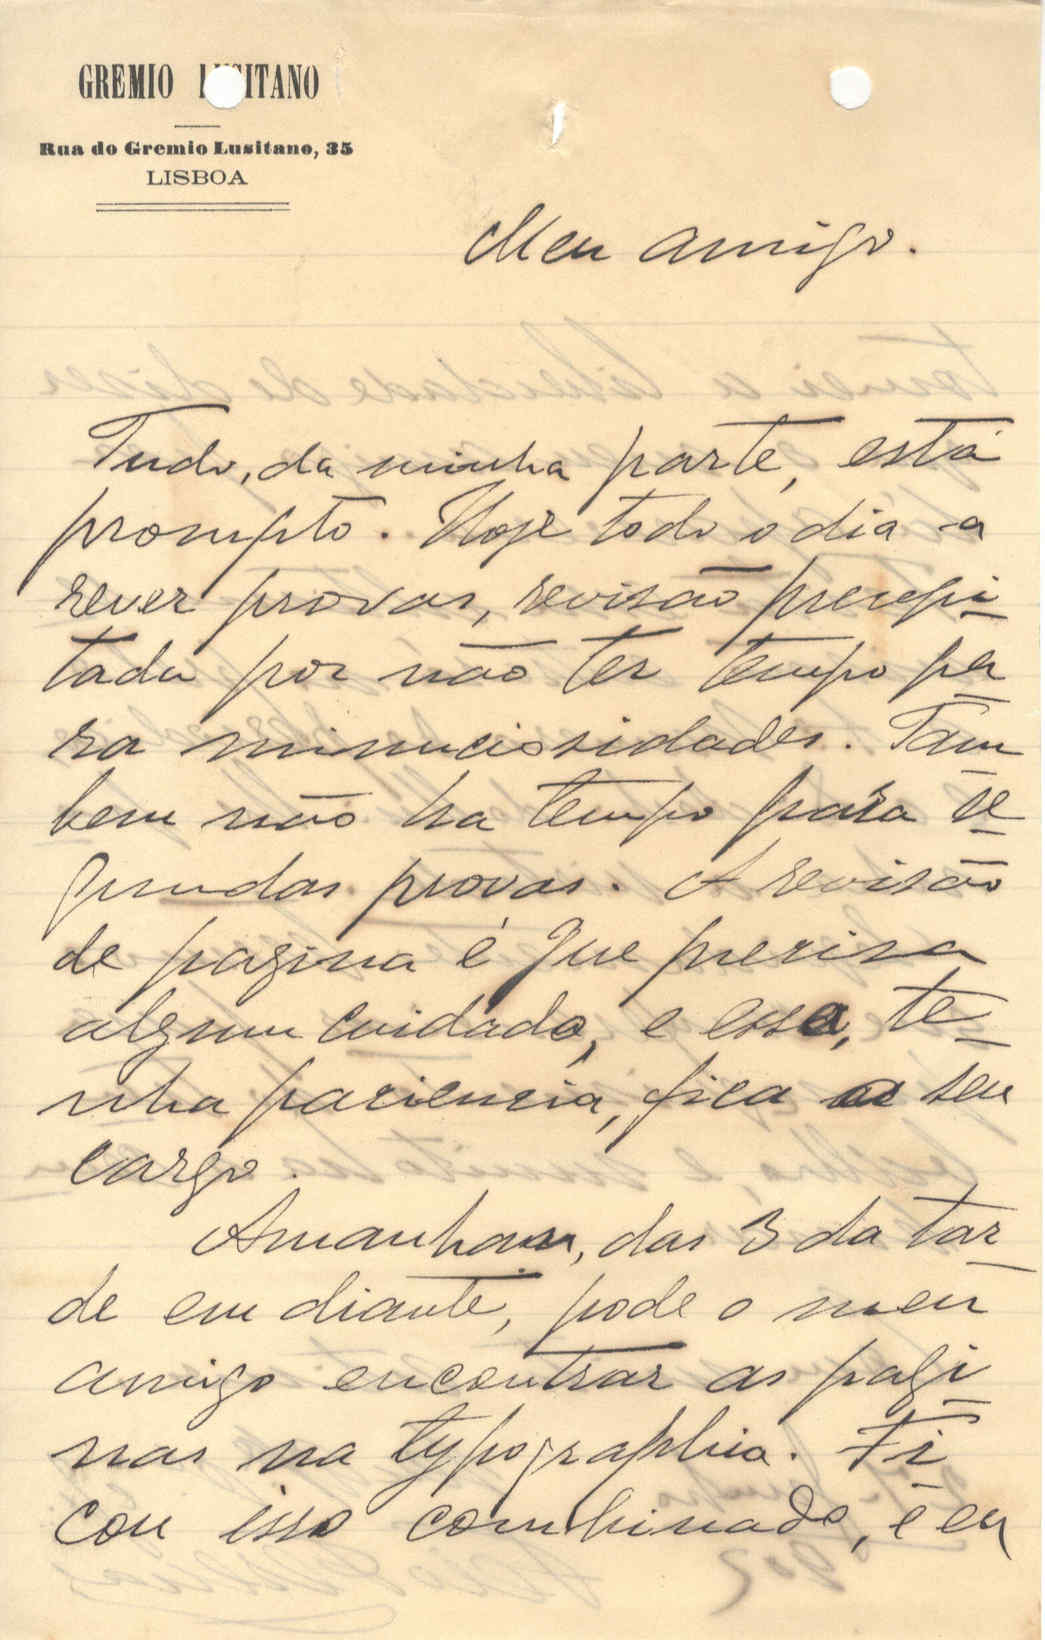 GREMIO LUSITANO
Rua do Gremio Lusitano, 35
LISBOA
Meu amigo.
Tudo, da minha parte, está
prompto. Hoje todo o dia a
rever provas, revisão precipi-
tada por não ter tempo pa
ra minuciosidades. Tam
bem não ha tempo para se-
gundas provas. A revisão
de pagina é que precisa
algum cuidado, e essa, te-
nha paciencia, fica a seu
cargo.
Amanhan, das 3 da tar-
de em diante, pode o meu
amigo encontrar as pagi-
nas na typographia. Fi-
cou isso combinado, e eu